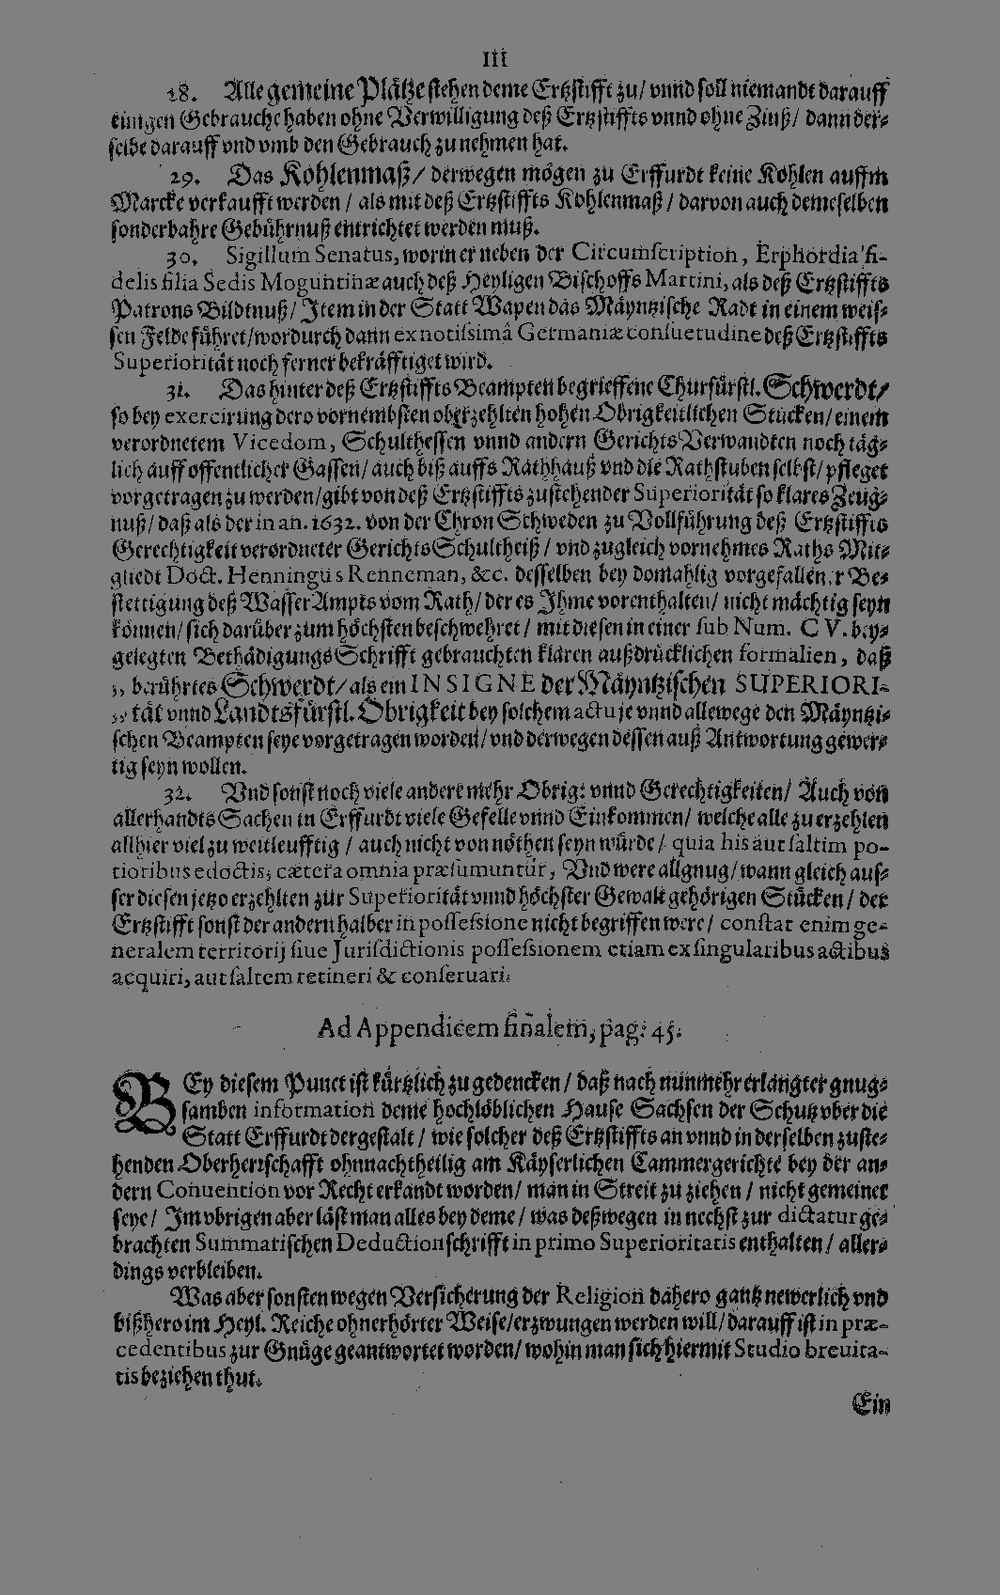 III
28. Alle gemeine Plätze stehen deme Ertzstifft zu/ vnnd soll niemandt darauff
einigen Gebrauche haben ohne Verwilligung deß Ertzstiffts vnnd ohne Zinß/ dann der-
selbe darauff vnd vmb den Gebrauch zu nehmen hat.
29. Das Kohlenmaß/ derwegen mögen zu Erffurdt keine Kohlen auffm
Marcke verkaufft werden/ als mit deß Ertzstiffts Kohlenmaß/ darvon auch demeselben
sonderbahre Gebührnuß entrichtet werden muß.
30. Sigillum Senatus, worin er neben der Circumscription, Erphordia fi-
delis filia Sedis Moguntinæ auch deß Heyligen Bischoffs Martini, als deß Ertzstiffts
Patrons Bildtnuß/ Item in der Statt Wapen das Mäyntzische Radt in einem weis-
sen Felde führet/ wordurch dann ex notissimâ Germaniæ consuetudine deß Ertzstiffts
Superiorität noch ferner bekräfftiget wird.
31. Das hinter deß Ertzstiffts Beampten begrieffene Churfürstl. Schwerdt/
so bey exercirung dero vornembsten oberzehlten hohen Obrigkeitlichen Stücken/ einem
verordnetem Vicedom, Schulthessen vnnd andern GerichtsVerwandten noch täg-
lich auff offentlicher Gassen/ auch biß auffs Rathhauß vnd die Rathstuben selbst/ pfleget
vorgetragen zu werden/ gibt von deß Ertzstiffts zustehender Superiorität so klares Zeug-
nuß/ daß als der in an. 1632. von der Chron Schweden zu Vollführung deß Ertzstiffts
Gerechtigkeit verordneter GerichtsSchultheiß/ vnd zugleich vornehmes Raths Mit-
gliedt Doct. Henningus Renneman, &c. desselben bey domahlig vorgefallener Be-
stettigung deß WasserAmpts vom Rath/ der es Ihme vorenthalten/ nicht mächtig seyn
können/ sich darüber zum höchsten beschwehret/ mit diesen in einer sub Num. CV. bey-
gelegten BethädigungsSchrifft gebrauchten klaren außdrücklichen formalien, daß
„ berührtes Schwerdt/ als ein INSIGNE der Mäyntzischen SUPERIORI-
„ tät vnnd Landtsfürstl. Obrigkeit bey solchem actu je vnnd allewege den Mäyntzi-
schen Beampten seye vorgetragen worden/ vnd derwegen dessen auß Antwortung gewer-
tig seyn wollen.
32. Vnd sonst noch viele andere mehr Obrig: vnnd Gerechtigkeiten/ Auch von
allerhandts Sachen in Erffurdt viele Gefelle vnnd Einkommen/ welche alle zu erzehlen
allhier viel zu weitleufftig/ auch nicht von nöthen seyn würde/ quia his aut saltim po-
tioribus edoctis, cætera omnia præsumuntur, Vnd were allgnug/ wann gleich aus-
ser diesen jetzo erzehlten zur Superiorität vnnd höchster Gewalt gehörigen Stücken/ der
Ertzstifft sonst der andern halber in possessione nicht begriffen were/ constat enim ge-
neralem territorij siue Jurisdictionis possessionem etiam ex singularibus actibus
acquiri, aut saltem retineri & conseruari.
Ad Appendicem finalem, pag: 45.
BEy diesem Punct ist kürtzlich zu gedencken/ daß nach nunmehr erlangter gnug-
samben information deme hochlöblichen Hause Sachsen der Schutz vber die
Statt Erffurdt dergestalt/ wie solcher deß Ertzstiffts an vnnd in derselben zuste-
henden Oberherrschafft ohnnachtheilig am Käyserlichen Cammergerichte bey der an-
dern Conuention vor Recht erkandt worden/ man in Streit zu ziehen/ nicht gemeinet
seye/ Im vbrigen aber läst man alles bey deme/ was deßwegen in nechst zur dictatur ge-
brachten Summarischen Deductionschrifft in primo Superioritatis enthalten/ aller-
dings verbleiben.
Was aber sonsten wegen Versicherung der Religion dahero gantz newerlich vnd
bißhero im Heyl. Reiche ohnerhörter Weise/ erzwungen werden will/ darauff ist in præ-
cedentibus zur Gnüge geantwortet worden/ wohin man sich hiermit Studio breuita-
tis beziehen thut.
Ein